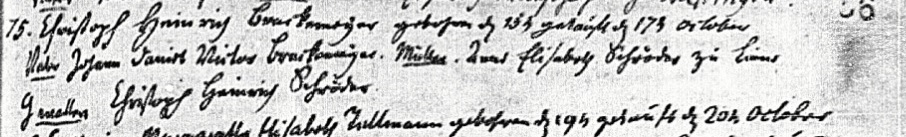 75. Christoph Heinrich Brackmeyer gebohren d 15t getauft d 17t October
Vater Johann Daniel Victor Brackmeyer. Mutter. Anna Elisabeth Schröder zu Liene
Gevatter Christoph Heinrich Schröder.
Elisabeth Tallmann gebohren d 19t getauft d 20t October